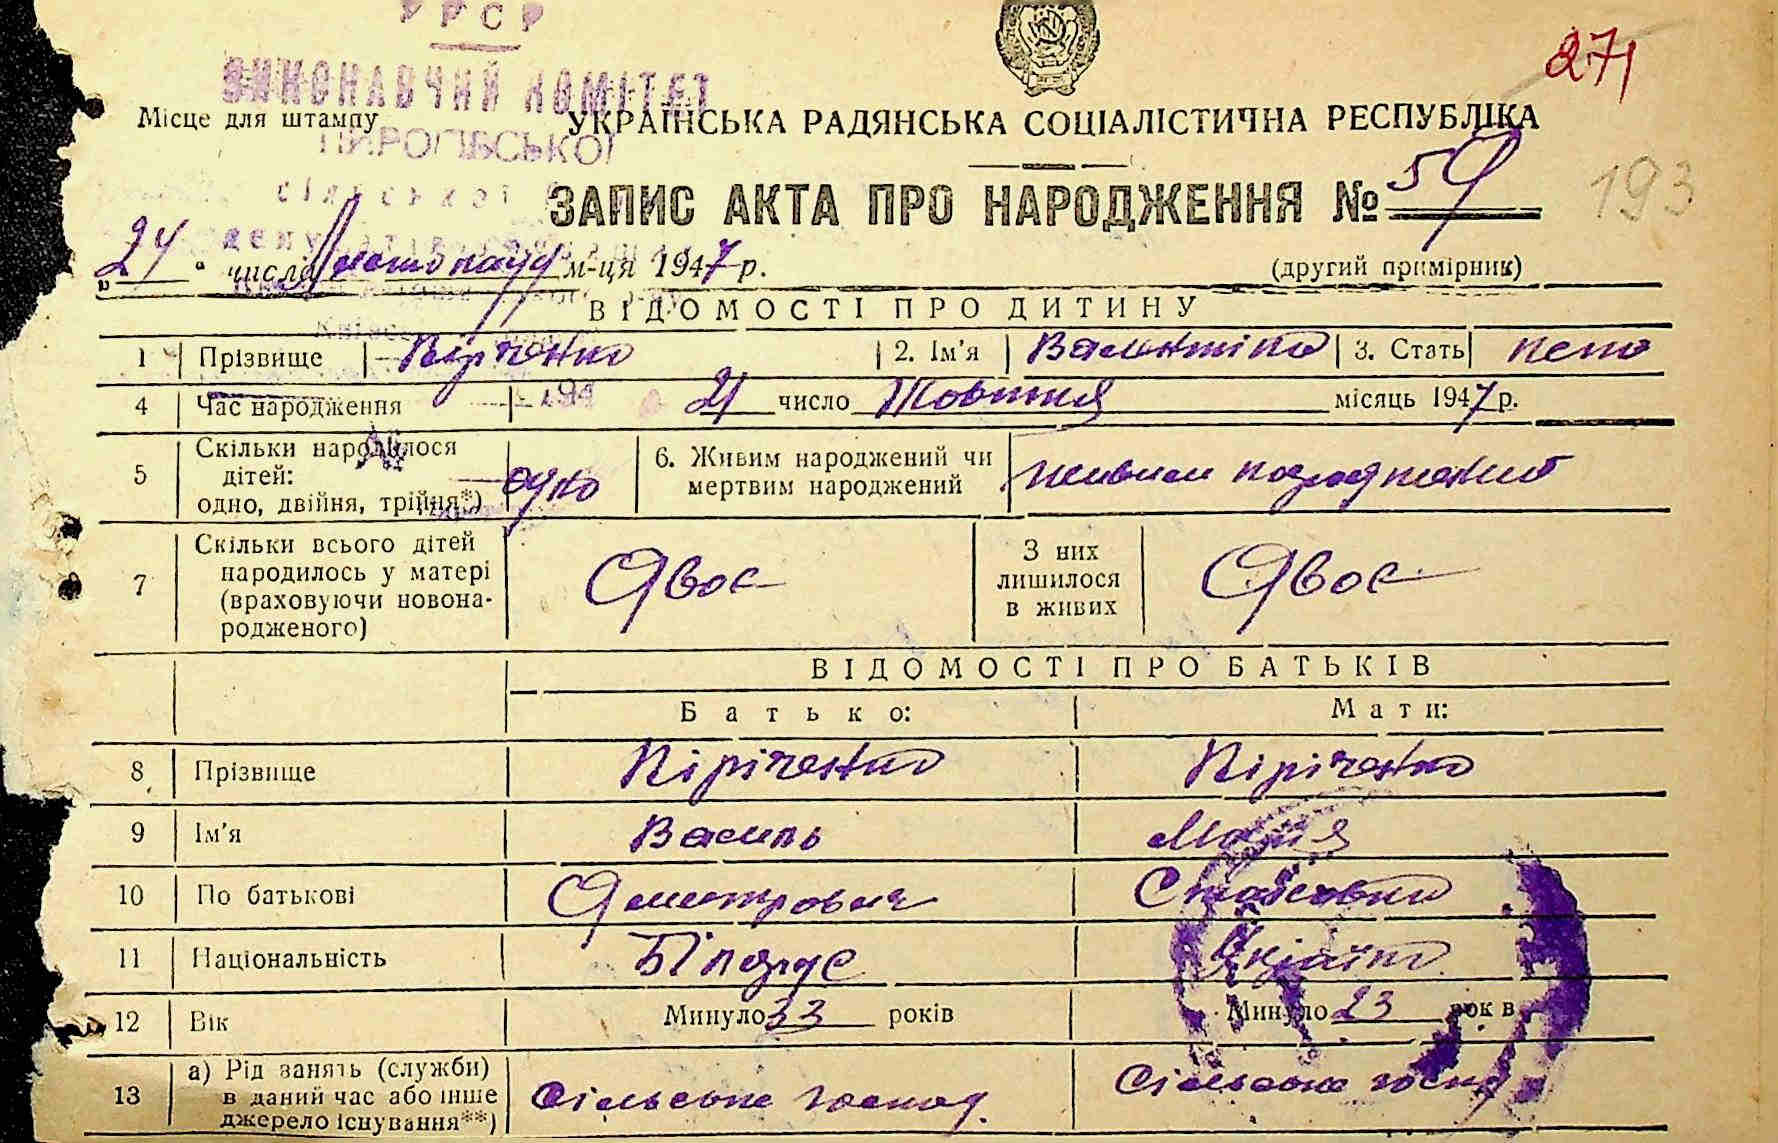 УРСР
ВИКОНАВЧИЙ КОМІТЕТ
271
Місце для штампу
УКРАЇНСЬКА РАДЯНСЬКА СОЦІАЛІСТИЧНА РЕСПУБЛІКА
ПИРОГІВСЬКОЇ
сільської
ЗАПИС АКТА ПРО НАРОДЖЕННЯ № 59
193
24 " числа Листопаду м-ця 1947 р.
(другий примірник)
ВІДОМОСТІ ПРО ДИТИНУ
1 Прізвище 2. Ім'я Валентина 3. Стать жіно
4 Час народження 21 число Жовтня місяць 1947 р.
5 Скільки народилося дітей: одно, двійня, трійня*) одно
6. Живим народжений чи мертвим народжений живим народжений
7 Скільки всього дітей народилось у матері (враховуючи новонародженого) Двоє
З них лишилося в живих Двоє
ВІДОМОСТІ ПРО БАТЬКІВ
Батько: Мати:
8 Прізвище Кіріченко Кіріченко
9 Ім'я Василь Марія
10 По батькові Дмитрович
11 Національність Білорус Україн
12 Вік Минуло 33 років Минуло 23 рок в
13 а) Рід занять (служби) в даний час або інше джерело існування**) Сільське господ. Сільське господ